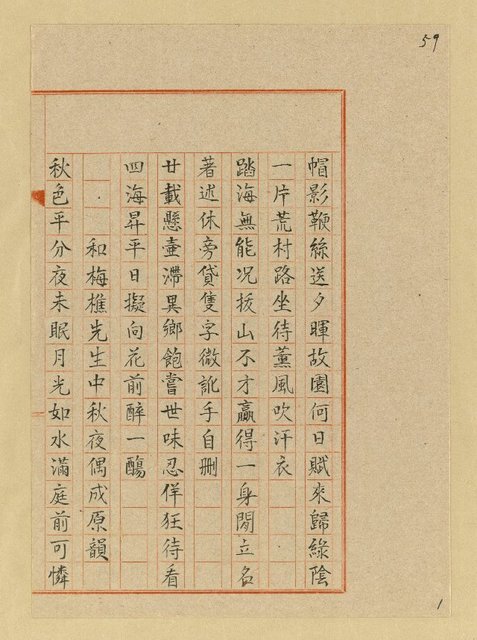 59
帽影鞭絲送夕暉故園何日賦來歸綠陰
一片荒村路坐待薰風吹汗衣
踏海無能况拔山不才贏得一身閒立名
著述休旁貸隻字微訛手自刪
廿載懸壺滯異鄉飽嘗世味忍佯狂待看
四海昇平日擬向花前醉一觴
和梅樵先生中秋夜偶成原韻
秋色平分夜未眠月光如水滿庭前可憐
1